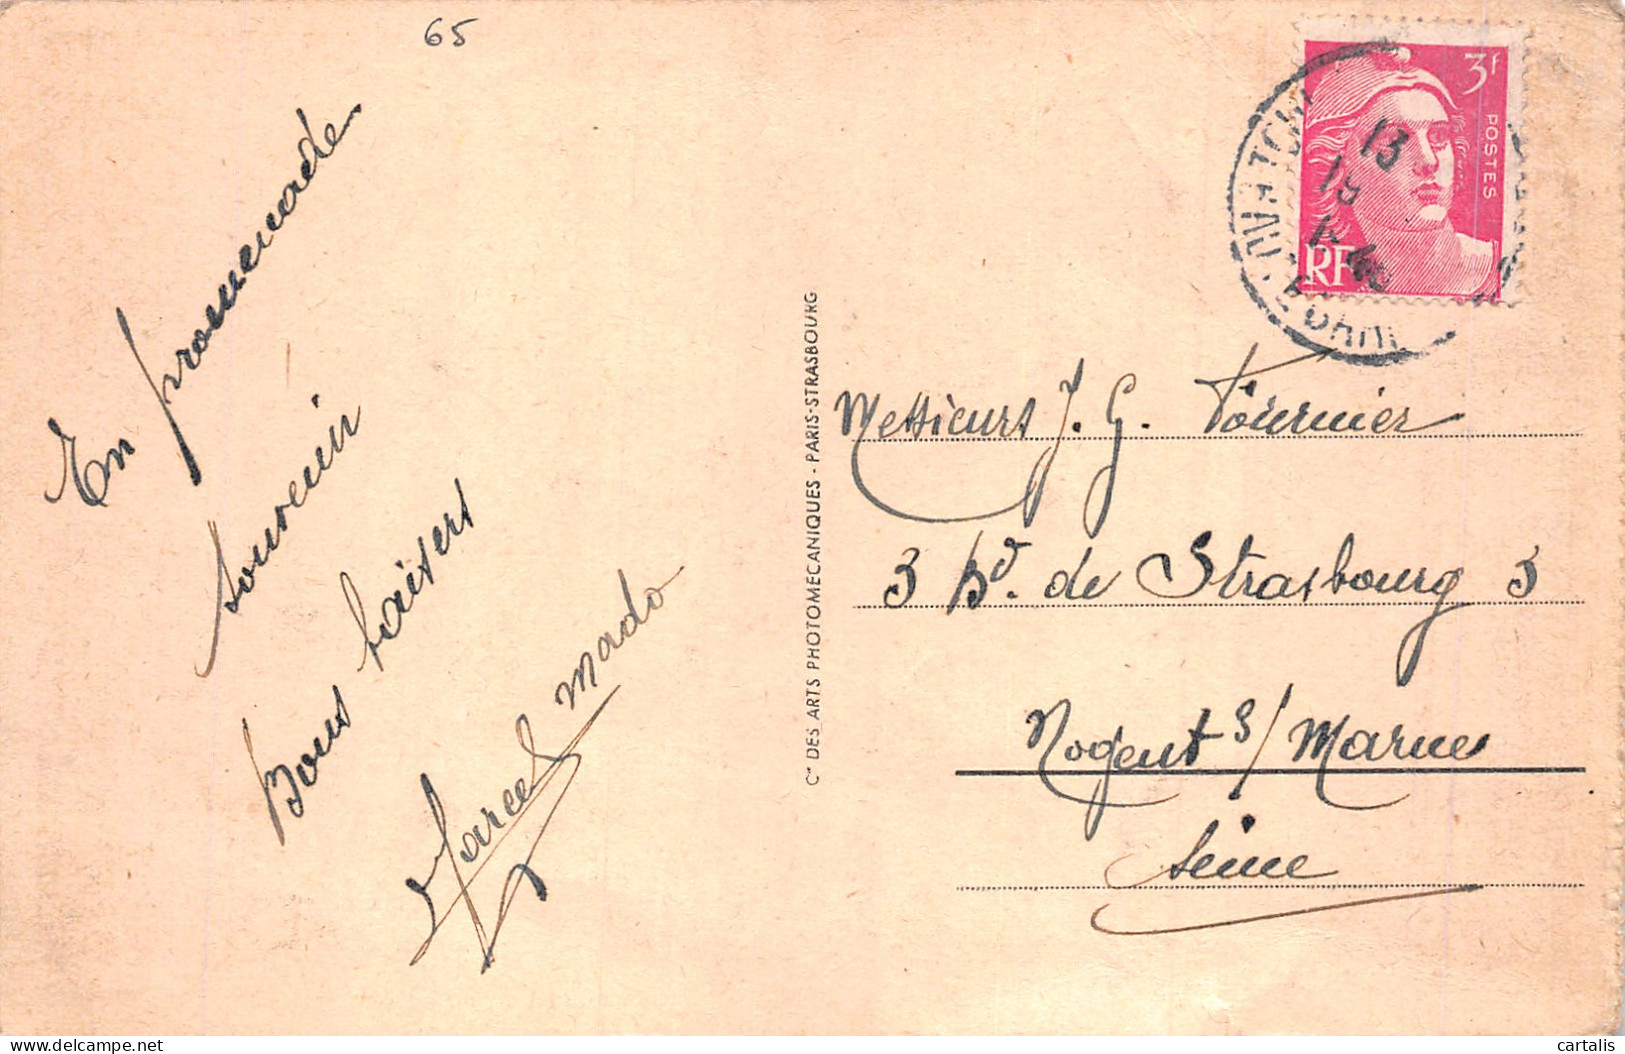 65
En promenade
souvenir
Bons baisers
Marcel Mado
Cie DES ARTS PHOTOMECANIQUES - PARIS-STRASBOURG
3f
POSTES
RF
13
19
Messieurs J. G. Fournier
3 Bd. de Strasbourg 3
Nogent s/ Marne
Seine
delcampe.net
cartalis